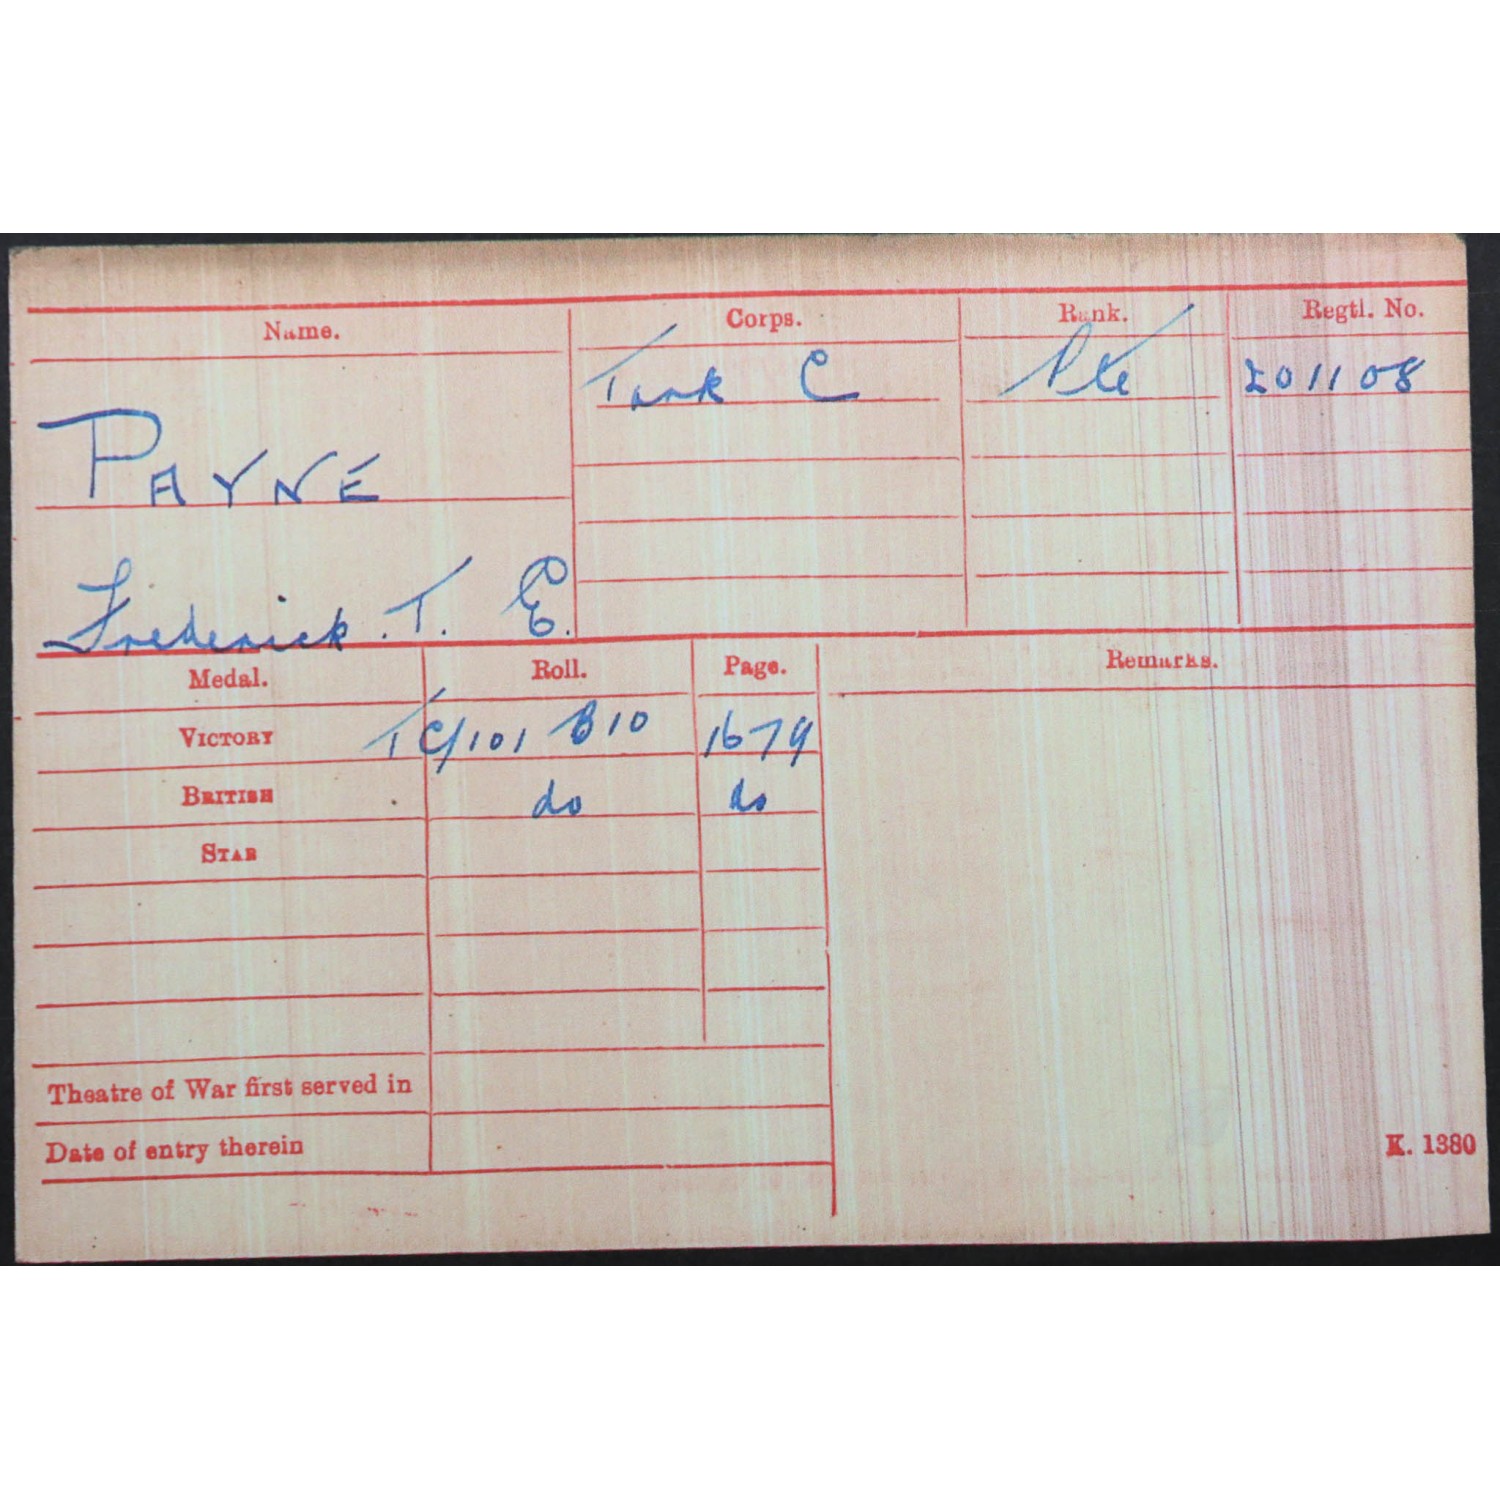 Name. Corps. Rank. Regtl. No.
Tank C Pte 201108
PAYNE
Frederick. T. E.
Medal. Roll. Page. Remarks.
VICTORY TC/101 B10 1679
BRITISH do do
STAR
Theatre of War first served in
Date of entry therein
K. 1380